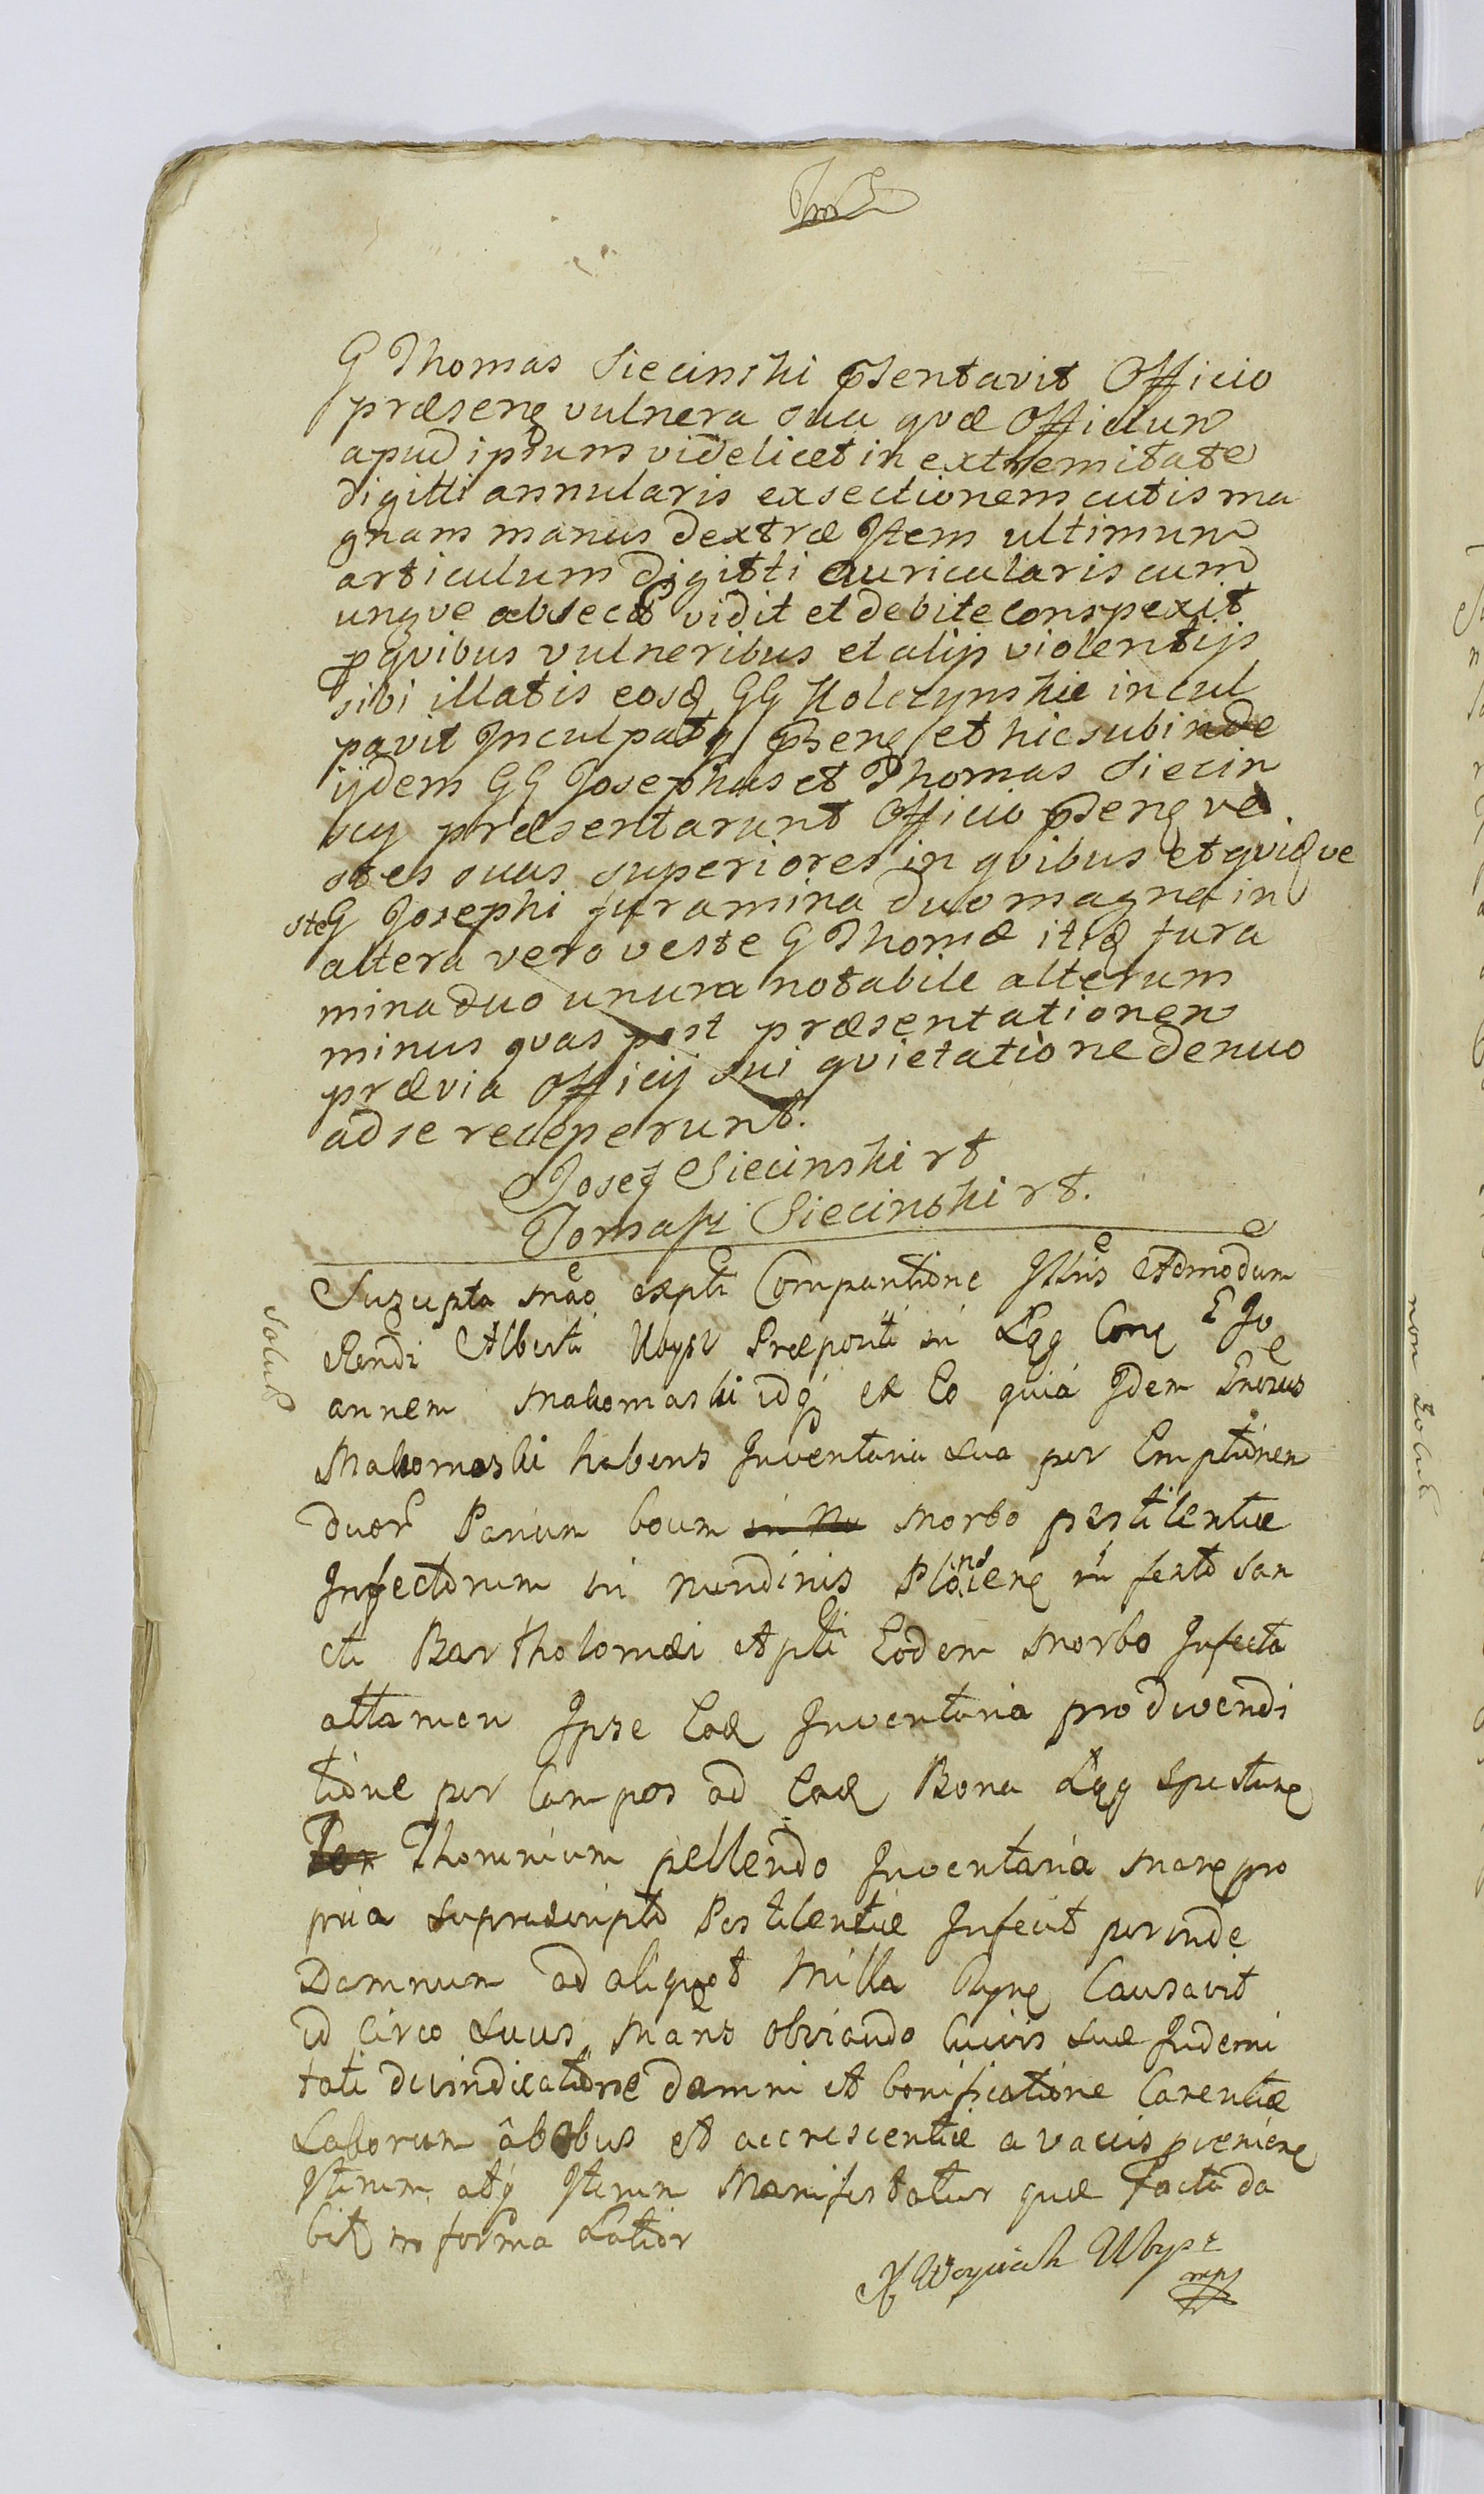 G Thomas Siecinski pħsentavit Officio
præsenę vulnera sua qvæ Officium
apud ipsum videlicet in extremitate
digitti annularis exsectionem cutis ma
gnam manus dextræ Item ultimum
articulum digitti auricularis cum
ungve absectũ vidit et debite conspexit
p qvibus vulneribus et alijs violentijs
sibi illatis eosd GG Kolczynskie incul
pavit Inculpatq pħsenę et hic subinde
ijdem GG Josephus et Thomas Siecin
scy præsentarunt Officio pħsenę ve
stes suas superiores in qvibus et qvid ve
ste G Josephi furamina duo magna in
altera vero veste G Thomæ itid fura
mina duo unum notabile alterum
minus qvas post præsentationem
prævia Officij sui qvietatione denuo
ad se receperunt.
Josef Siecinski rt
Tomasz Siecinski rt.
Suscepta mão expłi Comparitione Iłłris Admodum
Rendi Alberti Ubysz Præpositi in Łęg Conę G Jo
annem Makomaski idq ex eo quia Idem Gnorus
Makomaski habens Inventaria sua per Emptionem
duor Parium boum in nu morbo pestilentiæ
Infectorum in nundinis Plonscenę in festo San
cti Bartholomæi Apłi Eodem morbo Infecta
attamen Ipse Ead Inventaria pro divendi
tione per Campos ad Ead Bona Łęg spectanę
Thominium pellendo Inventaria Manę pro
pria suprascripto Pestilentiæ Infecit perinde
Damnum ad aliquot Milla Causavit
id circo suus Mañs obviando Cuivis suæ Indemni
tati de vindicatione damni et bonificatione Carentiæ
Laborum â bobus et accrescentiæ a vaccis
Iterum atq Iterum Manifestatur quæ facta da
bit in forma Latior
X Woyciech Ubysz
mp
Solut
non solut